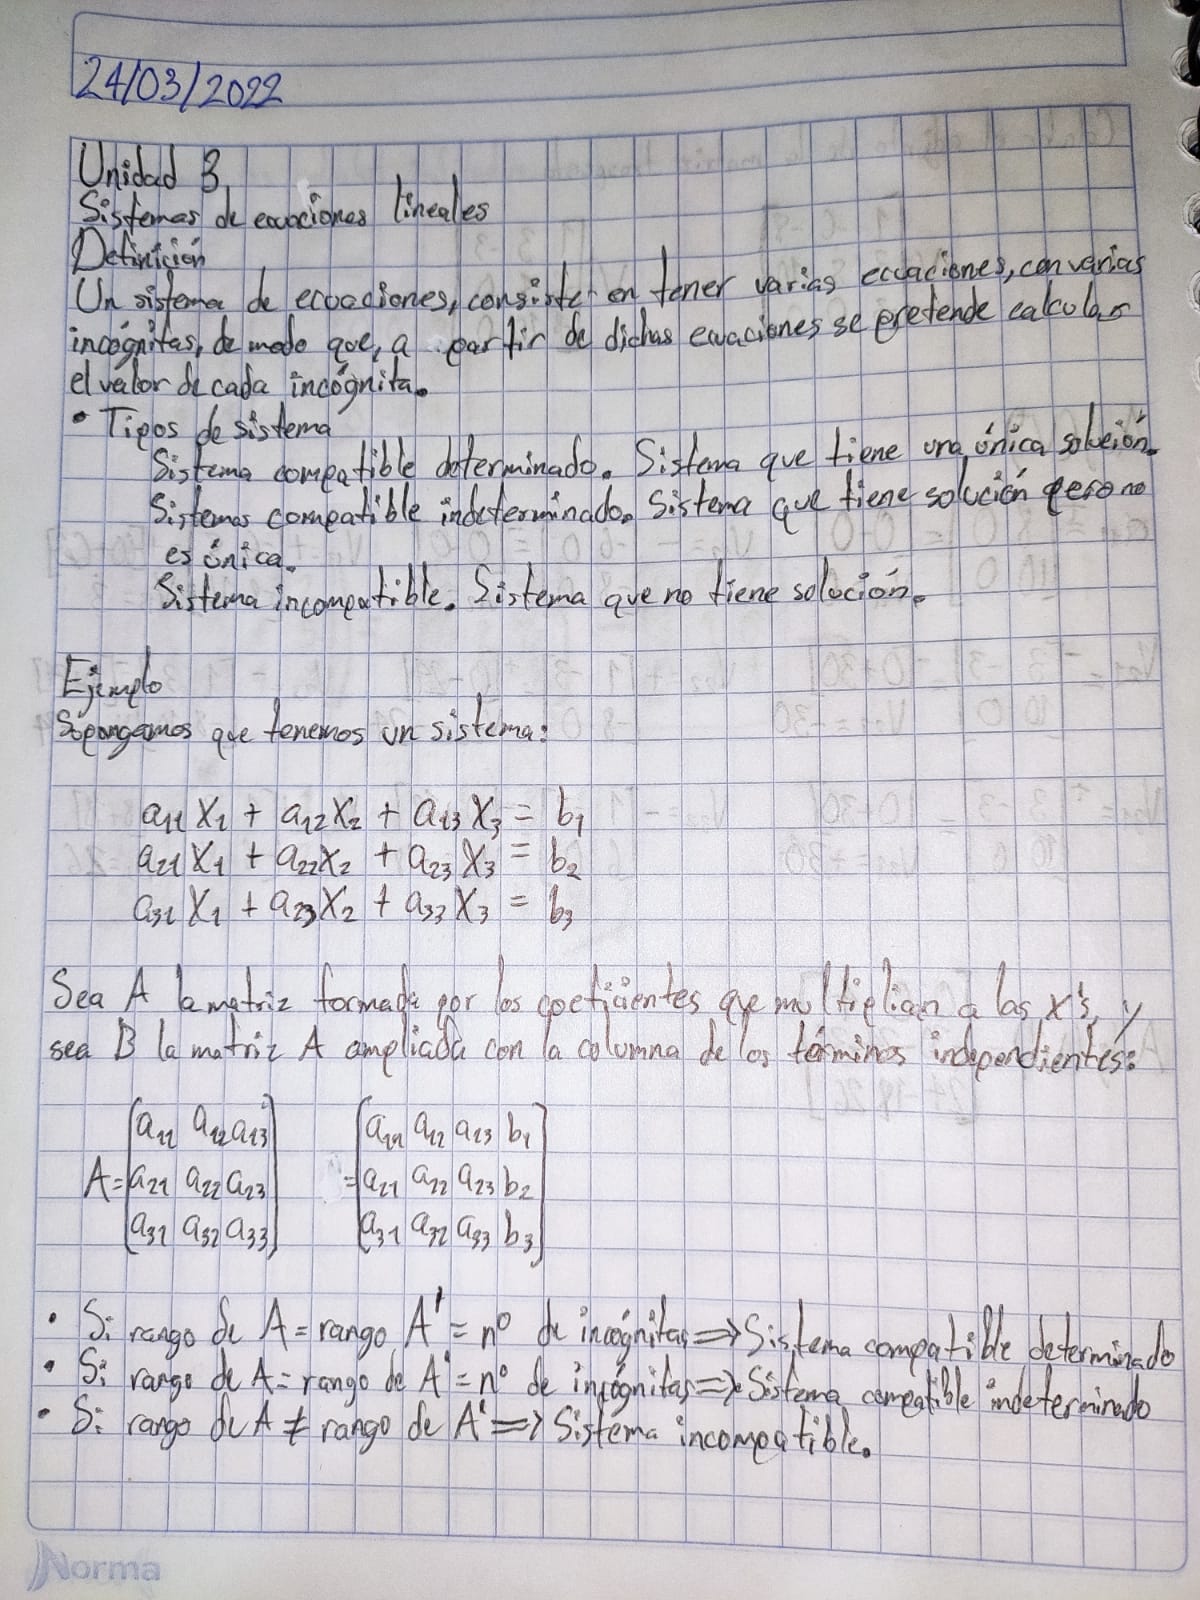 24/03/2022
Unidad 3
Sistemas de ecuaciones lineales
Definición
Un sistema de ecuaciones, consiste en tener varias ecuaciones, con varias
incógnitas, de modo que, a partir de dichas ecuaciones se pretende calcular
el valor de cada incógnita.
• Tipos de sistema
Sistema compatible determinado. Sistema que tiene una única solución.
Sistemas compatible indeterminado. Sistema que tiene solución pero no
es única.
Sistema incompatible. Sistema que no tiene solución.
Ejemplo
Supongamos que tenemos un sistema:
a₁₁X₁ + a₁₂X₂ + a₁₃X₃ = b₁
a₂₁X₁ + a₂₂X₂ + a₂₃X₃ = b₂
a₃₁X₁ + a₂₃X₂ + a₃₃X₃ = b₃
Sea A la matriz formada por los coeficientes que multiplian a las X's, y
sea B la matriz A ampliada con la columna de los términos independientes:
[a₁₁ a₁₂ a₁₃] [a₁₁ a₁₂ a₁₃ b₁]
A=[a₂₁ a₂₂ a₂₃] =[a₂₁ a₂₂ a₂₃ b₂]
[a₃₁ a₃₂ a₃₃] [a₃₁ a₃₂ a₃₃ b₃]
• Si rango de A = rango A' = nº de incógnitas => Sistema compatible determinado
• Si rango de A = rango de A' = nº de incógnitas => Sistema compatible indeterminado
• Si rango de A ≠ rango de A' => Sistema incompatible.
Norma